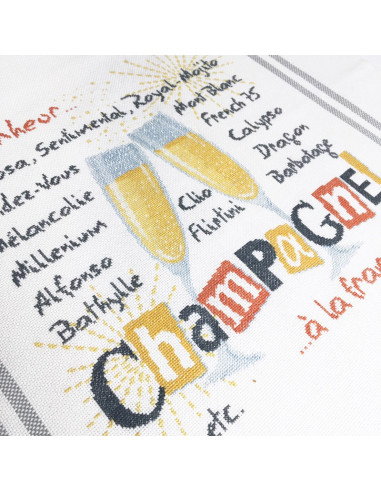 nheur...
osa, Sentimental, Royal-Mojito
dez-Vous
Mont Blanc
French 75
Mélancolie
Calypso
Millenium
Dragon
Clio
Barbotage
Alfonso
Flirtini
Bathylle
ChamPagne!
...à la fran
etc.